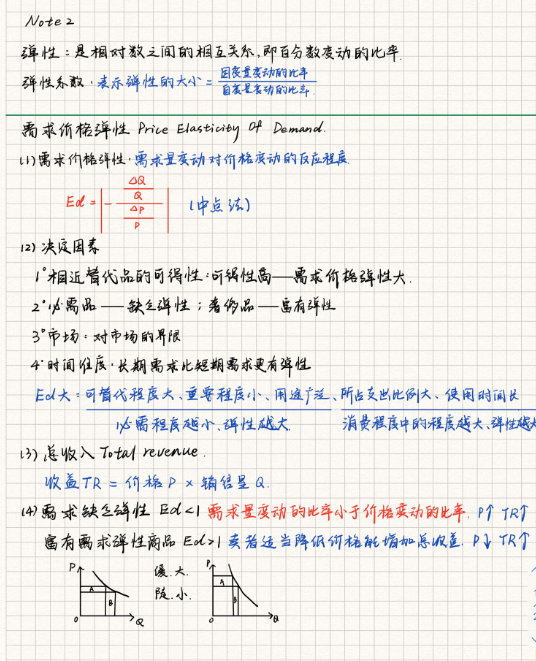 Note 2
弹性：是相对数之间的相互关系,即百分数变动的比率.
弹性系数：表示弹性的大小 = 因变量变动的比率
自变量变动的比率
需求价格弹性 Price Elasticity Of Demand.
(1) 需求价格弹性：需求量变动对价格变动的反应程度.
Ed = |- ΔQ/Q / ΔP/P | (中点法)
(2) 决定因素
1°相近替代品的可得性：可得性高——需求价格弹性大.
2°必需品——缺乏弹性；奢侈品——富有弹性
3°市场：对市场的界限
4°时间维度：长期需求比短期需求更有弹性
Ed大：可替代程度大、重要程度小、用途广泛、所占支出比例大、使用时间长
必需程度越小、弹性越大 消费程度中的程度越大、弹性越大
(3) 总收入 Total revenue.
收益TR = 价格P × 销售量Q.
(4) 需求缺乏弹性 Ed<1 需求量变动的比率小于价格变动的比率. P↑ TR↑
富有需求弹性商品 Ed>1 卖者适当降低价格能增加总收益. P↓ TR↑
P A B O Q
缓.大.
陡.小.
P A B O Q